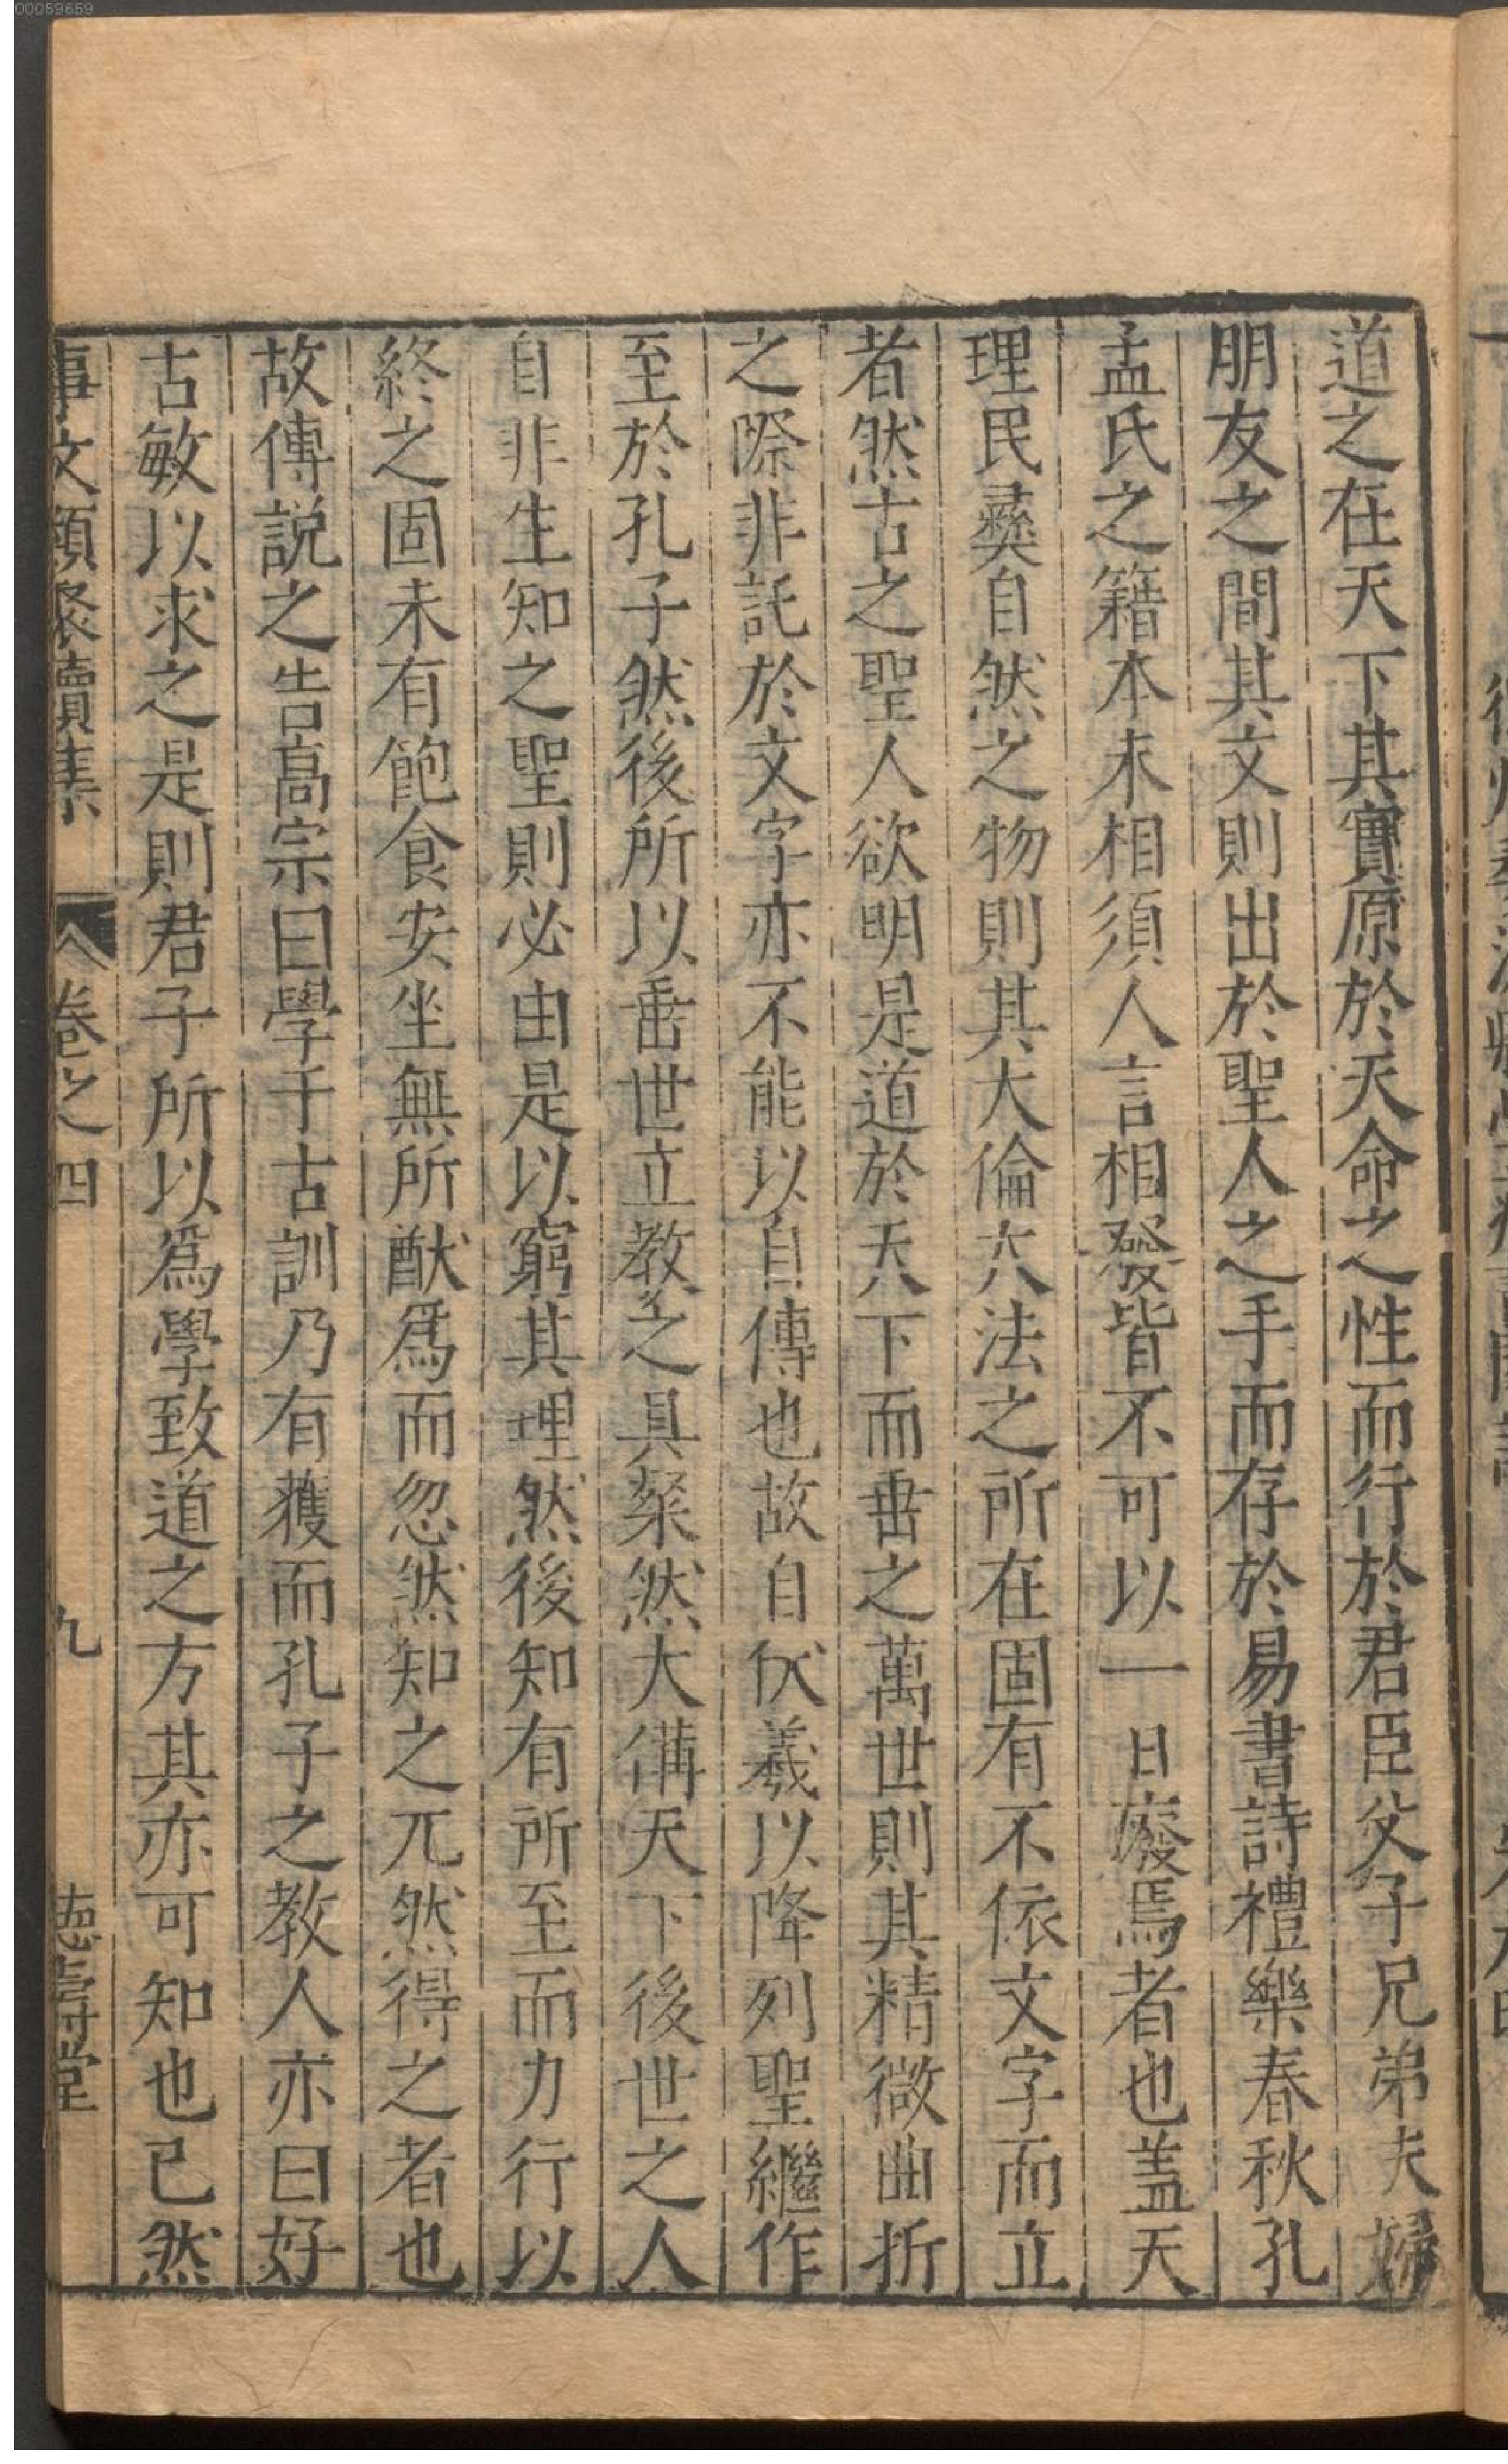 00059659
道之在天下其實原於天命之性而行於君臣父子兄弟夫婦
朋友之間其文則出於聖人之手而存於易書詩禮樂春秋孔
孟氏之籍本末相須人言相發皆不可以一日廢焉者也蓋天
理民彝自然之物則其大倫大法之所在固有不依文字而立
者然古之聖人欲明是道於天下而垂之萬世則其精微曲折
之際非託於文字亦不能以自傳也故自伏羲以降列聖繼作
至於孔子然後所以垂世立教之具粲然大備天下後世之人
自非生知之聖則必由是以窮其理然後知有所至而力行以
終之固未有飽食安坐無所猷爲而忽然知之兀然得之者也
故傳説之告高宗曰學于古訓乃有獲而孔子之教人亦曰好
古敏以求之是則君子所以爲學致道之方其亦可知也已然
事文類聚續集 卷之四 九 德壽堂